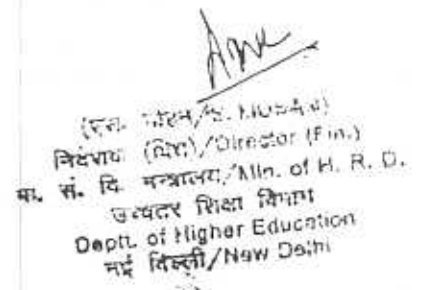 निदेशक (वित्त)/Director (Fin.)
मा. सं. वि. मन्त्रालय/Min. of H. R. D.
उच्चतर शिक्षा विभाग
Deptt. of Higher Education
नई दिल्ली/New Delhi